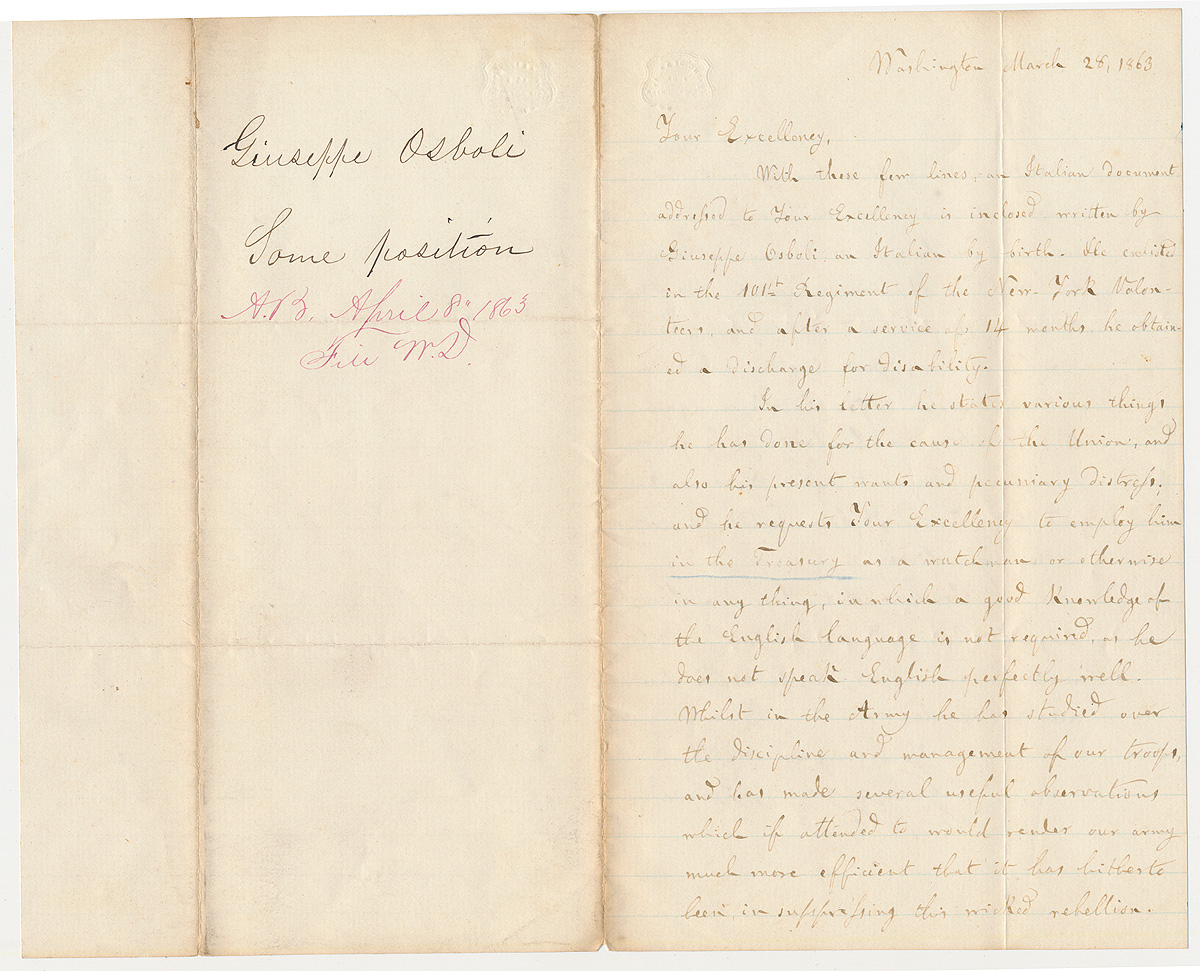 Giuseppe Osboli
Some position
A.B. April 8" 1863
File W.D.
Washington March 28, 1863
Your Excellency,
With these few lines, an Italian document
addressed to Your Excellency is inclosed written by
Giuseppe Osboli, an Italian by birth. He enlisted
in the 101st Regiment of the New-York Volon-
teers, and after a service of 14 months he obtain-
ed a discharge for disability.
In his letter he states various things
he has done for the cause of the Union, and
also his present wants and pecuniary distress;
and he requests Your Excellency to employ him
in the Treasury as a watchman or otherwise
in any thing, in which a good Knowledge of
the English language is not required, as he
does not speak English perfectly well.
Whilst in the Army he has studied over
the discipline and management of our troops,
and has made several useful observations
which if attended to would render our army
much more efficient that it has hitherto
been, in suppressing this wicked rebellion.